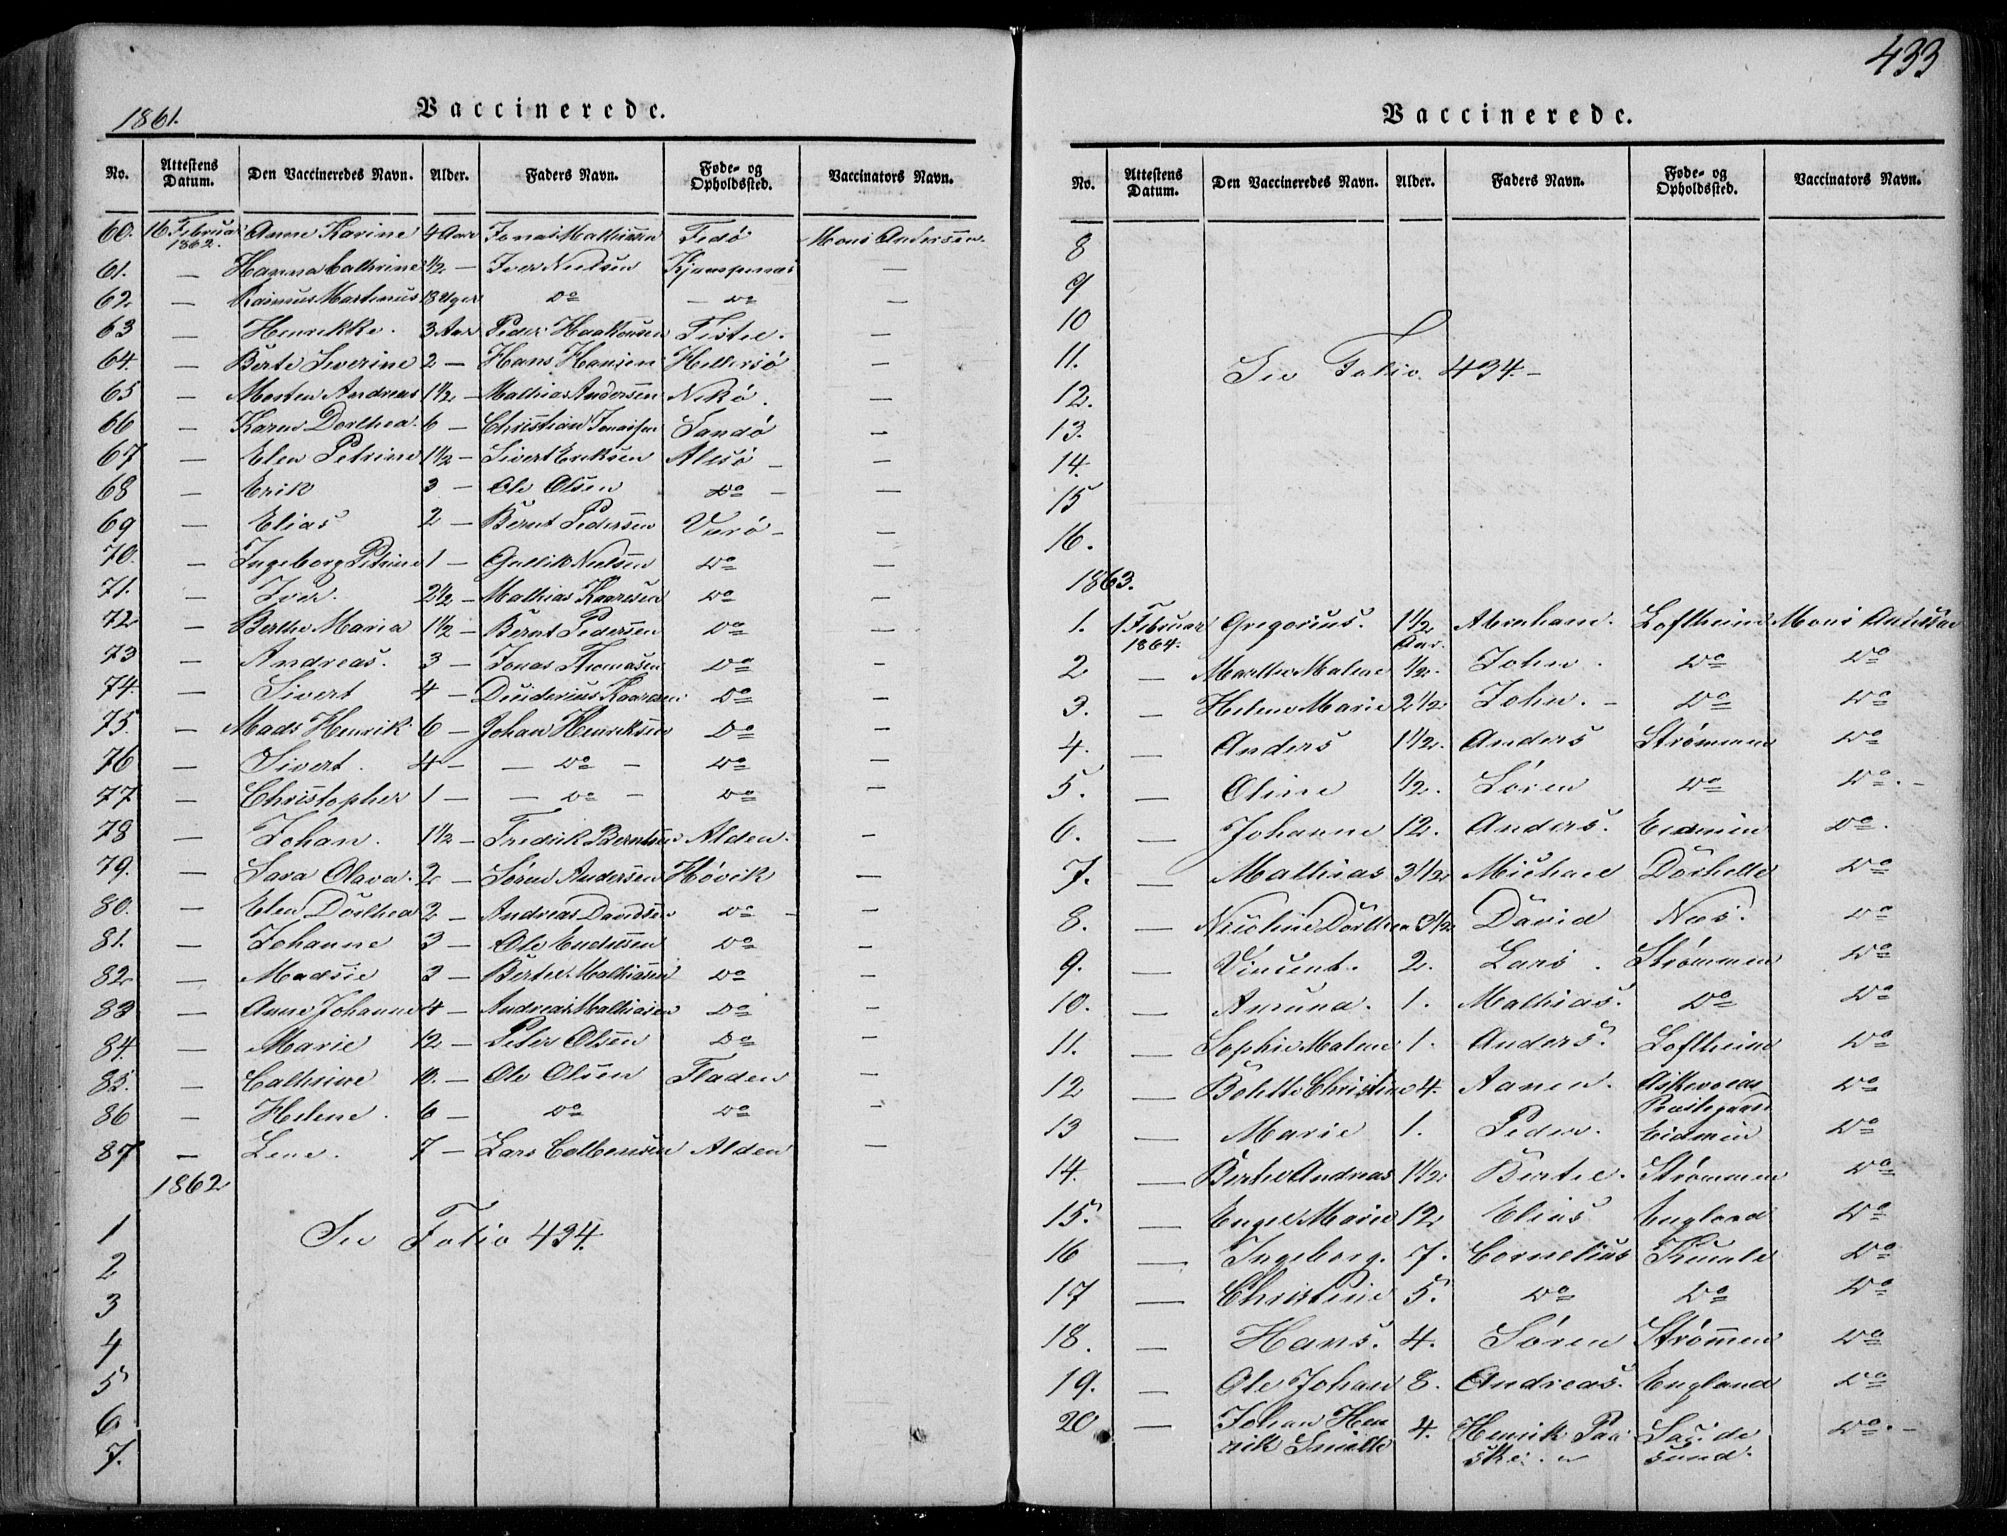 1861.
Vaccinerede.
No. Attestens Datum. Den Vaccineredes Navn. Alder. Faders Navn. Føde- og Opholdssted. Vaccinators Navn.
60. 16 Februar 1862. Anne Karine 4 Aar Jonas Mathissen Fedö Mons Andersen.
61. — Hanna Cathrine 1/2 — Iver Nielsen —
62. — Rasmus Martinus 18 Uger Do — Do —
63 — Henrikke. 3 Aar Peder Haakonsen Tistel. —
64. — Berte Severine 2 — Hans Hansen Hellersö —
65 — Morten Andreas 1 1/2 — Mathias Andersen Nekö. —
66 — Karen Dorthea. 6 — Christian Jonassen Sandö —
67 — Elen Petrine 1 1/2 — Sivert Eriksen Alesö —
68 — Erik 3 — Ole Olsen Do — —
69 — Elias 2 — Bernt Pedersen Værö — —
70. — Ingeborg Petrine 1 — Gullik Nielsen Do —
71. — Iver. 2 1/2 — Mathias Kaaresen Do —
72 — Berthe Maria 1 1/2 — Bernt Pedersen Do —
73 — Andreas. 3 — Jonas Thomasen Do —
74. — Sivert 4 — Kaaresen. Do —
75. — Mads Henrik 6 — Johan Henriksen Do —
76 — Sivert. 4 — — Do — Do —
77 — Christopher 1 — — Do — Do —
78 — Johan. 1 1/2 — Fredrik Berntsen Alden. —
79. — Sara Olava. 2 — Sören Andersen Høvik —
80. — Elen Dorthea 2 — Andreas Davidsen Do — —
81. — Johanne 3 — Ole Endresen Do —
82 — Madsie 3 — Bertel Mathiasen Do —
83 — Anne Johanne 4 — Andreas Mathiasen Do —
84. — Marie 12 — Peter Olsen Do —
85. — Cathrine 10. — Ole Olsen Fladen —
86 — Helene. 6 — Do Do —
87 — Lene. 7 — Lars Colbensen Alden —
1862
1
See Folio 434.
2
3
4
5
6
7.
433
Vaccinerede.
No. Attestens Datum. Den Vaccineredes Navn. Alder. Faders Navn. Føde- og Opholdssted. Vaccinators Navn.
8
9
10
11.
See Folio. 434. —
12.
13.
14.
15
16.
1863.
1. 1 Februar 1864. Gregorius. 1 1/2 Aar. Abraham. Loftheim Mons Andersen
2 — Marthe Malene 1/2. John. Do Do
3. — Helene Marie 2 1/2 John. — Do Do
4. — Anders 1 1/2. Anders Strømmen Do
5. — Oline 1/2. Søren Do Do. —
6. — Johanne 12. Anders. Eidmien Do.
7. — Mathias 3 1/2 Michael Dørhelle Do
8. — Nicoline Dorthea 3 1/2 David Nes. Do
9. — Vincent. 2. Lars. Strømmen Do
10. — Amund. 1. Mathias. Do Do
11. — Sophie Malene 1. Anders. Loftheim Do
12 — Bolette Christine 4. Aanen. Askevolds Præstegaard Do
13 — Marie 1. Peder. Eidmien Do
14. — Berthe Andreas 1 1/2. Bertel. Strømmen Do
15. — Engel Marie 12 Elias England Do
16 — Ingeborg. 7. Cornelius Kumle Do
17 — Christine 5. Do Do Do
18. — Hans. 4. Søren Strømmen Do
19. — Ole Johan 8. Andreas. England Do
20. — Johan Henrik Smith 4. Henrik sund. Do. —